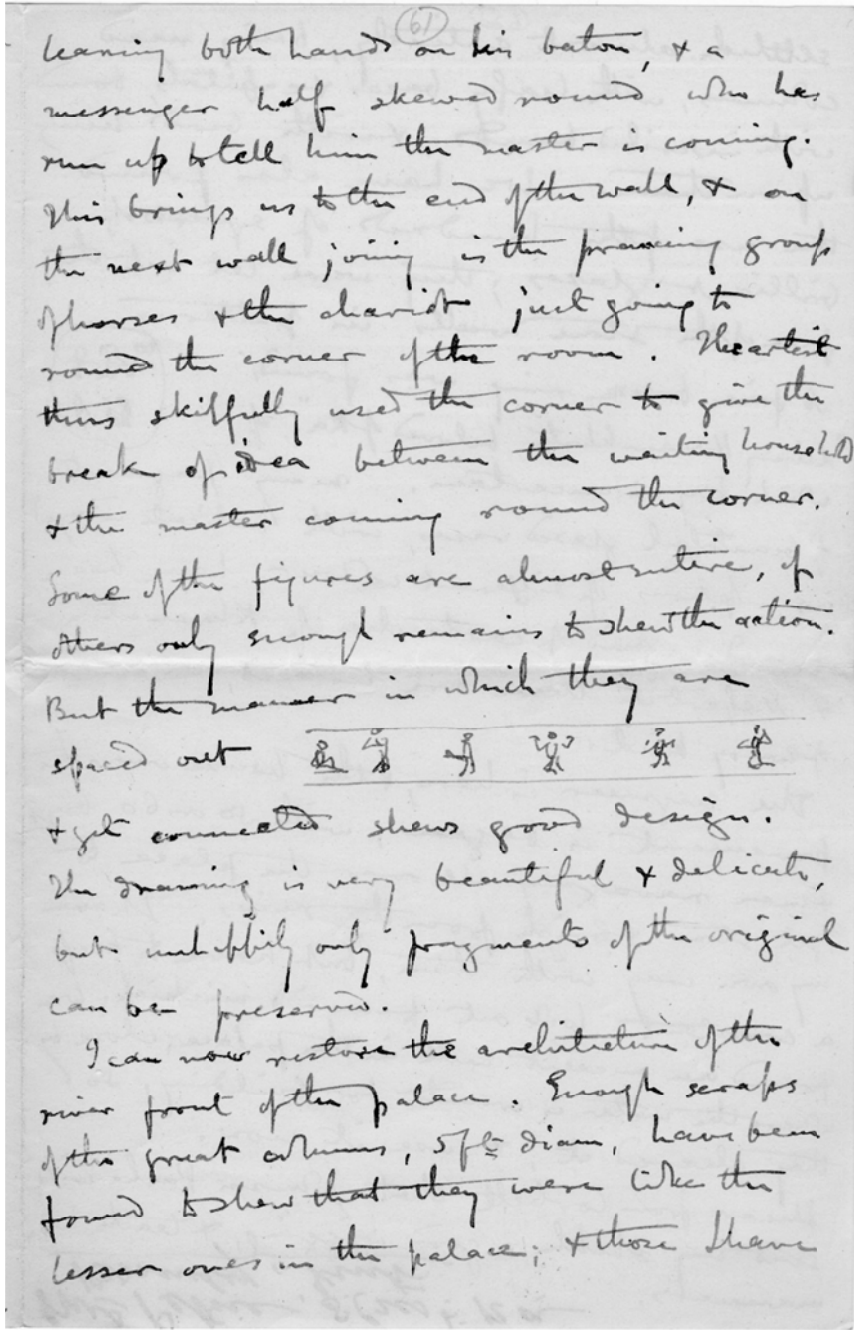 (61)
leaning both hands on his baton, & a
messenger half skewed round who has
run up to tell him the master is coming.
This brings us to the end of the wall, & on
the next wall joining is the prancing group
of horses & the chariot just going to
round the corner of the room. The artist
thus skilfully used the corner to give the
break of idea between the waiting household
& the master coming round the corner.
Some of the figures are almost entire, of
others only enough remains to shew the action.
But the manner in which they are
spaced out
& yet connected shews good design.
The drawing is very beautiful & delicate,
but unhappily only fragments of the original
can be preserved.
I can now restore the architecture of the
river front of the palace. Enough scraps
of the great columns, 5 ft diam, have been
found to shew that they were like the
lesser ones in the palace; & those I have